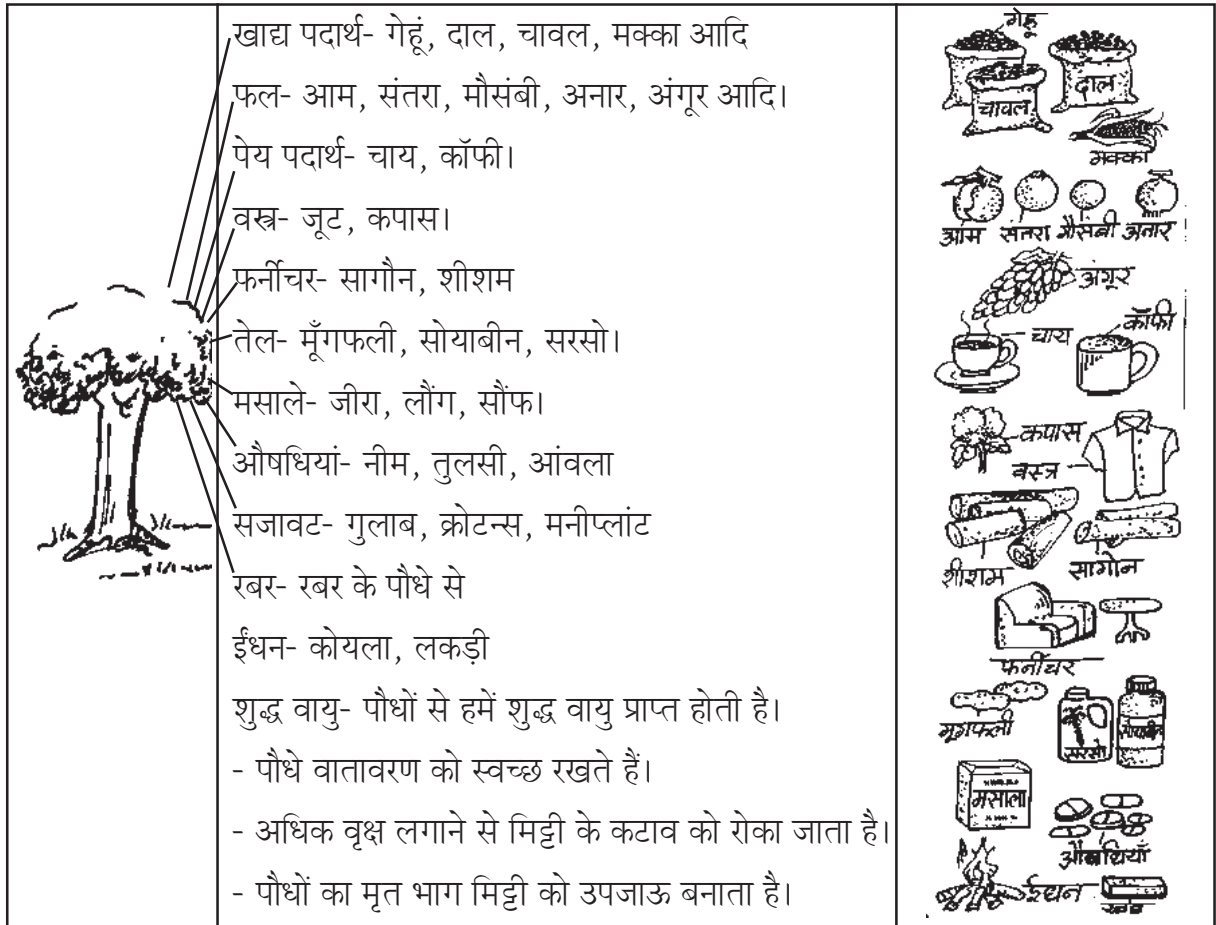 खाद्य पदार्थ- गेहूं, दाल, चावल, मक्का आदि
फल- आम, संतरा, मौसंबी, अनार, अंगूर आदि।
पेय पदार्थ- चाय, कॉफी।
वस्त्र- जूट, कपास।
फर्नीचर- सागौन, शीशम
तेल- मूँगफली, सोयाबीन, सरसो।
मसाले- जीरा, लौंग, सौंफ।
औषधियां- नीम, तुलसी, आंवला
सजावट- गुलाब, क्रोटन्स, मनीप्लांट
रबर- रबर के पौधे से
ईंधन- कोयला, लकड़ी
शुद्ध वायु- पौधों से हमें शुद्ध वायु प्राप्त होती है।
- पौधे वातावरण को स्वच्छ रखते हैं।
- अधिक वृक्ष लगाने से मिट्टी के कटाव को रोका जाता है।
- पौधों का मृत भाग मिट्टी को उपजाऊ बनाता है।
गेहूं
चावल दाल
मक्का
आम संतरा मौसंबी अनार
अंगूर
चाय कॉफी
कपास
वस्त्र
शीशम सागोन
फर्नीचर
मूगफली सरसो
मसाला
औषधियाँ
ईधन